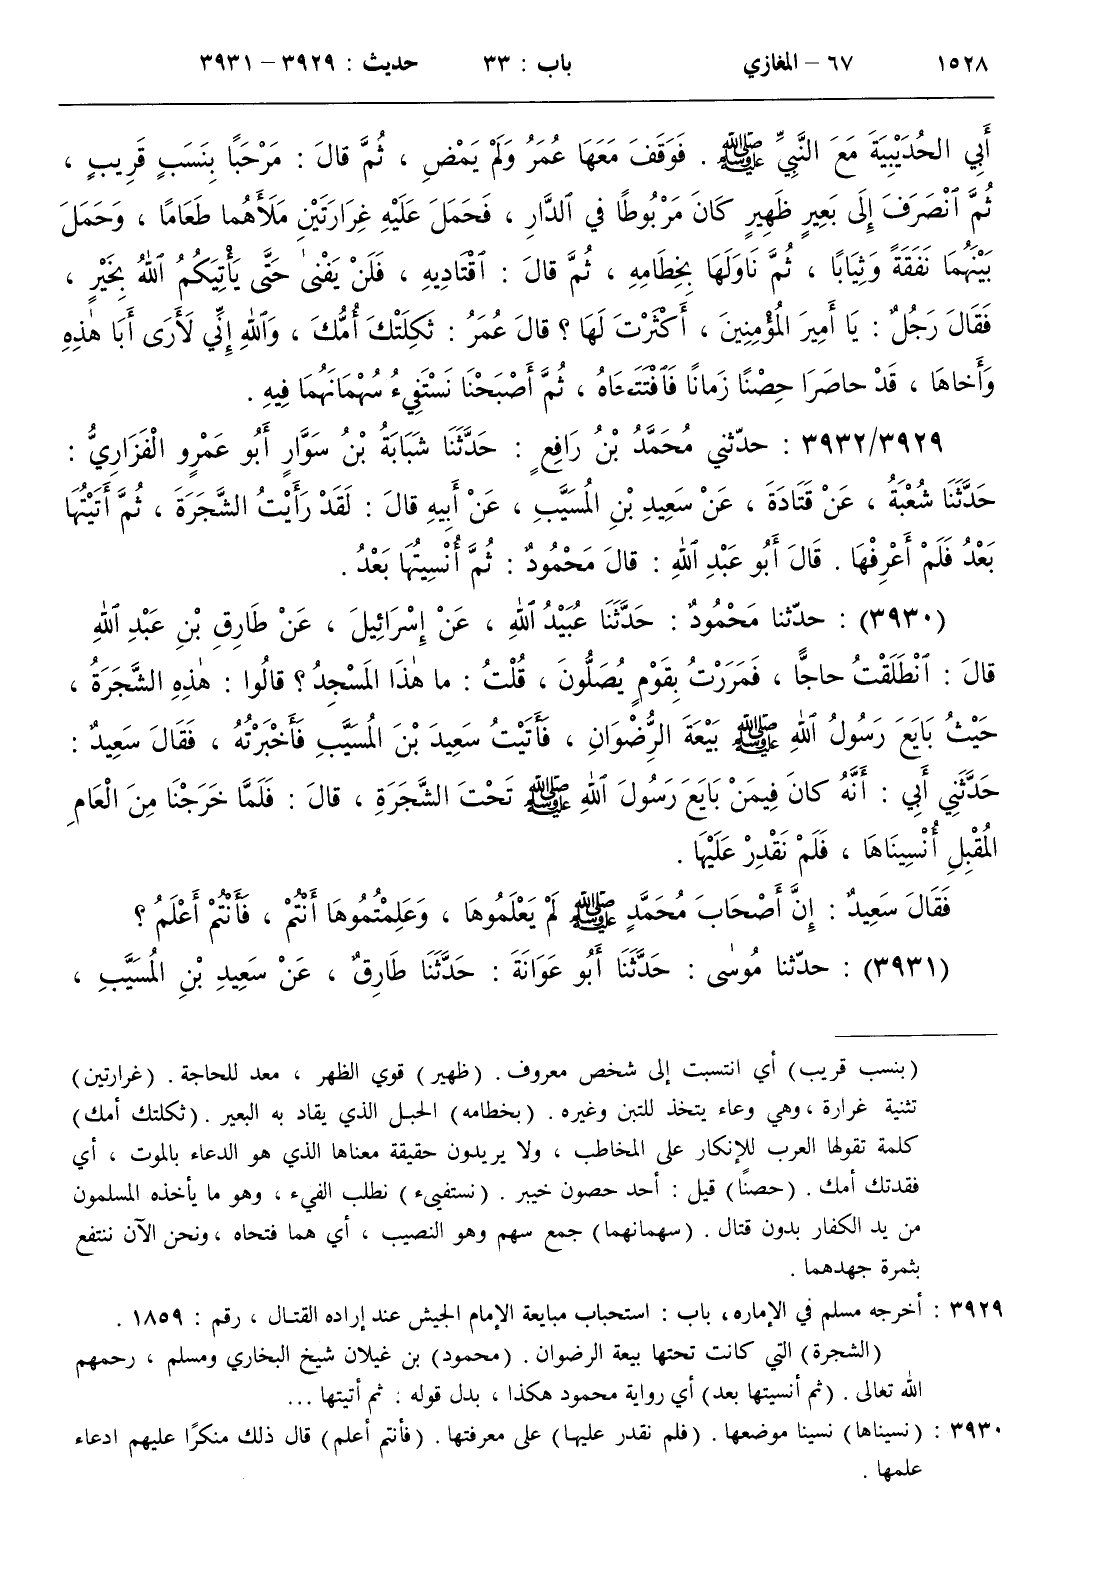 ١٥٢٨ ٦٧ – المغازي باب : ٣٣ حديث : ٣٩٢٩ – ٣٩٣١
أَبِي الحُدَيْبِيَةَ مَعَ النَّبِيِّ ﷺ . فَوَقَفَ مَعَهَا عُمَرُ وَلَمْ يَمْضِ ، ثُمَّ قالَ : مَرْحَبًا بِنَسَبٍ قَرِيبٍ ،
ثُمَّ ٱنْصَرَفَ إِلَى بَعِيرٍ ظَهِيرٍ كَانَ مَرْبُوطًا في ٱلدَّارِ ، فَحَمَلَ عَلَيْهِ غِرَارَتَيْنِ مَلَأَهُما طَعَامًا ، وَحَمَلَ
بَيْنَهُمَا نَفَقَةً وَثِيَابًا ، ثُمَّ نَاوَلَهَا بِخِطَامِهِ ، ثُمَّ قالَ : ٱقْتَادِيهِ ، فَلَنْ يَفْنىٰ حَتَّى يَأْتِيَكُمُ ٱللهُ بِخَيْرٍ ،
فَقَالَ رَجُلٌ : يَا أَمِيرَ الْمُؤْمِنِينَ ، أَكْثَرْتَ لَهَا ؟ قالَ عُمَرُ : ثَكِلَتْكَ أُمُّكَ ، وَٱللهِ إِنِّي لَأَرَى أَبَا هٰذِهِ
وَأَخاهَا ، قَدْ حاصَرَا حِصْنًا زَمانًا فَٱفْتَتَحَاهُ ، ثُمَّ أَصْبَحْنَا نَسْتَفِيءُ سُهْمَانَهُمَا فِيهِ .
٣٩٣٢/٣٩٢٩ : حدّثني مُحَمَّدُ بْنُ رَافِعٍ : حَدَّثَنَا شَبَابَةُ بْنُ سَوَّارٍ أَبُو عَمْرٍو الْفَزَارِيُّ :
حَدَّثَنَا شُعْبَةُ ، عَنْ قَتَادَةَ ، عَنْ سَعِيدِ بْنِ المُسَيَّبِ ، عَنْ أَبِيهِ قالَ : لَقَدْ رَأَيْتُ الشَّجَرَةَ ، ثُمَّ أَتَيْتُهَا
بَعْدُ فَلَمْ أَعْرِفْهَا . قَالَ أَبُو عَبْدِ ٱللهِ : قالَ مَحْمُودٌ : ثُمَّ أُنْسِيتُهَا بَعْدُ .
(٣٩٣٠) : حدّثنا مَحْمُودٌ : حَدَّثَنَا عُبَيْدُ ٱللهِ ، عَنْ إِسْرَائِيلَ ، عَنْ طَارِقِ بْنِ عَبْدِ ٱللهِ
قالَ : ٱنْطَلَقْتُ حاجًّا ، فَمَرَرْتُ بِقَوْمٍ يُصَلُّونَ ، قُلْتُ : ما هٰذَا المَسْجِدُ ؟ قالُوا : هٰذِهِ الشَّجَرَةُ ،
حَيْثُ بَايَعَ رَسُولُ ٱللهِ ﷺ بَيْعَةَ الرِّضْوَانِ ، فَأَتَيْتُ سَعِيدَ بْنَ المُسَيَّبِ فَأَخْبَرْتُهُ ، فَقَالَ سَعِيدٌ :
حَدَّثَنِي أَبِي : أَنَّهُ كانَ فِيمَنْ بَايَعَ رَسُولَ ٱللهِ ﷺ تَحْتَ الشَّجَرَةِ ، قالَ : فَلَمَّا خَرَجْنَا مِنَ الْعَامِ
المُقْبِلِ أُنْسِينَاهَا ، فَلَمْ نَقْدِرْ عَلَيْهَا .
فَقَالَ سَعِيدٌ : إِنَّ أَصْحَابَ مُحَمَّدٍ ﷺ لَمْ يَعْلَمُوهَا ، وَعَلِمْتُمُوهَا أَنْتُمْ ، فَأَنْتُمْ أَعْلَمُ ؟
(٣٩٣١) : حدّثنا مُوسٰى : حَدَّثَنَا أَبُو عَوَانَةَ : حَدَّثَنَا طَارِقٌ ، عَنْ سَعِيدِ بْنِ المُسَيَّبِ ،
(بنسب قريب) أي انتسبت إلى شخص معروف . (ظهير) قوي الظهر ، معد للحاجة . (غرارتين)
تثنية غرارة ، وهي وعاء يتخذ للتبن وغيره . (بخطامه) الحبل الذي يقاد به البعير . (ثكلتك أمك)
كلمة تقولها العرب للإنكار على المخاطب ، ولا يريدون حقيقة معناها الذي هو الدعاء بالموت ، أي
فقدتك أمك . (حصنًا) قيل : أحد حصون خيبر . (نستفيء) نطلب الفيء ، وهو ما يأخذه المسلمون
من يد الكفار بدون قتال . (سهمانهما) جمع سهم وهو النصيب ، أي هما فتحاه ، ونحن الآن ننتفع
بثمرة جهدهما .
٣٩٢٩ : أخرجه مسلم في الإماره ، باب : استحباب مبايعة الإمام الجيش عند إراده القتال ، رقم : ١٨٥٩ .
(الشجرة) التي كانت تحتها بيعة الرضوان . (محمود) بن غيلان شيخ البخاري ومسلم ، رحمهم
الله تعالى . (ثم أنسيتها بعد) أي رواية محمود هكذا ، بدل قوله : ثم أتيتها ...
٣٩٣٠ : (نسيناها) نسينا موضعها . (فلم نقدر عليها) على معرفتها . (فأنتم أعلم) قال ذلك منكرًا عليهم ادعاء
علمها .